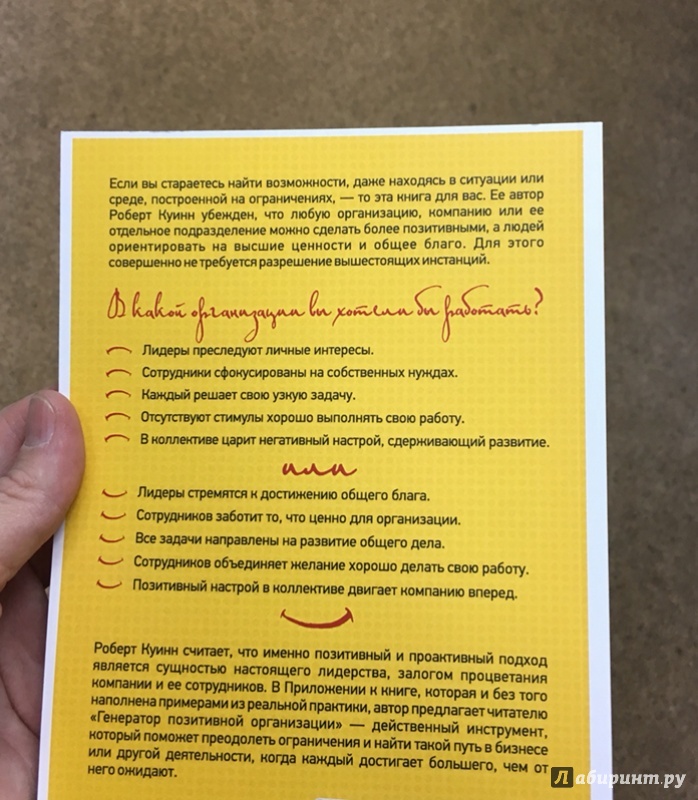 Если вы стараетесь найти возможности, даже находясь в ситуации или
среде, построенной на ограничениях, — то эта книга для вас. Ее автор
Роберт Куинн убежден, что любую организацию, компанию или ее
отдельное подразделение можно сделать более позитивными, а людей
ориентировать на высшие ценности и общее благо. Для этого
совершенно не требуется разрешение вышестоящих инстанций.
В какой организации вы хотели бы работать?
Лидеры преследуют личные интересы.
Сотрудники сфокусированы на собственных нуждах.
Каждый решает свою узкую задачу.
Отсутствуют стимулы хорошо выполнять свою работу.
В коллективе царит негативный настрой, сдерживающий развитие.
или
Лидеры стремятся к достижению общего блага.
Сотрудников заботит то, что ценно для организации.
Все задачи направлены на развитие общего дела.
Сотрудников объединяет желание хорошо делать свою работу.
Позитивный настрой в коллективе двигает компанию вперед.
Роберт Куинн считает, что именно позитивный и проактивный подход
является сущностью настоящего лидерства, залогом процветания
компании и ее сотрудников. В Приложении к книге, которая и без того
наполнена примерами из реальной практики, автор предлагает читателю
«Генератор позитивной организации» — действенный инструмент,
который поможет преодолеть ограничения и найти такой путь в бизнесе
или другой деятельности, когда каждый достигает большего, чем от
него ожидают.
Лабиринт.ру